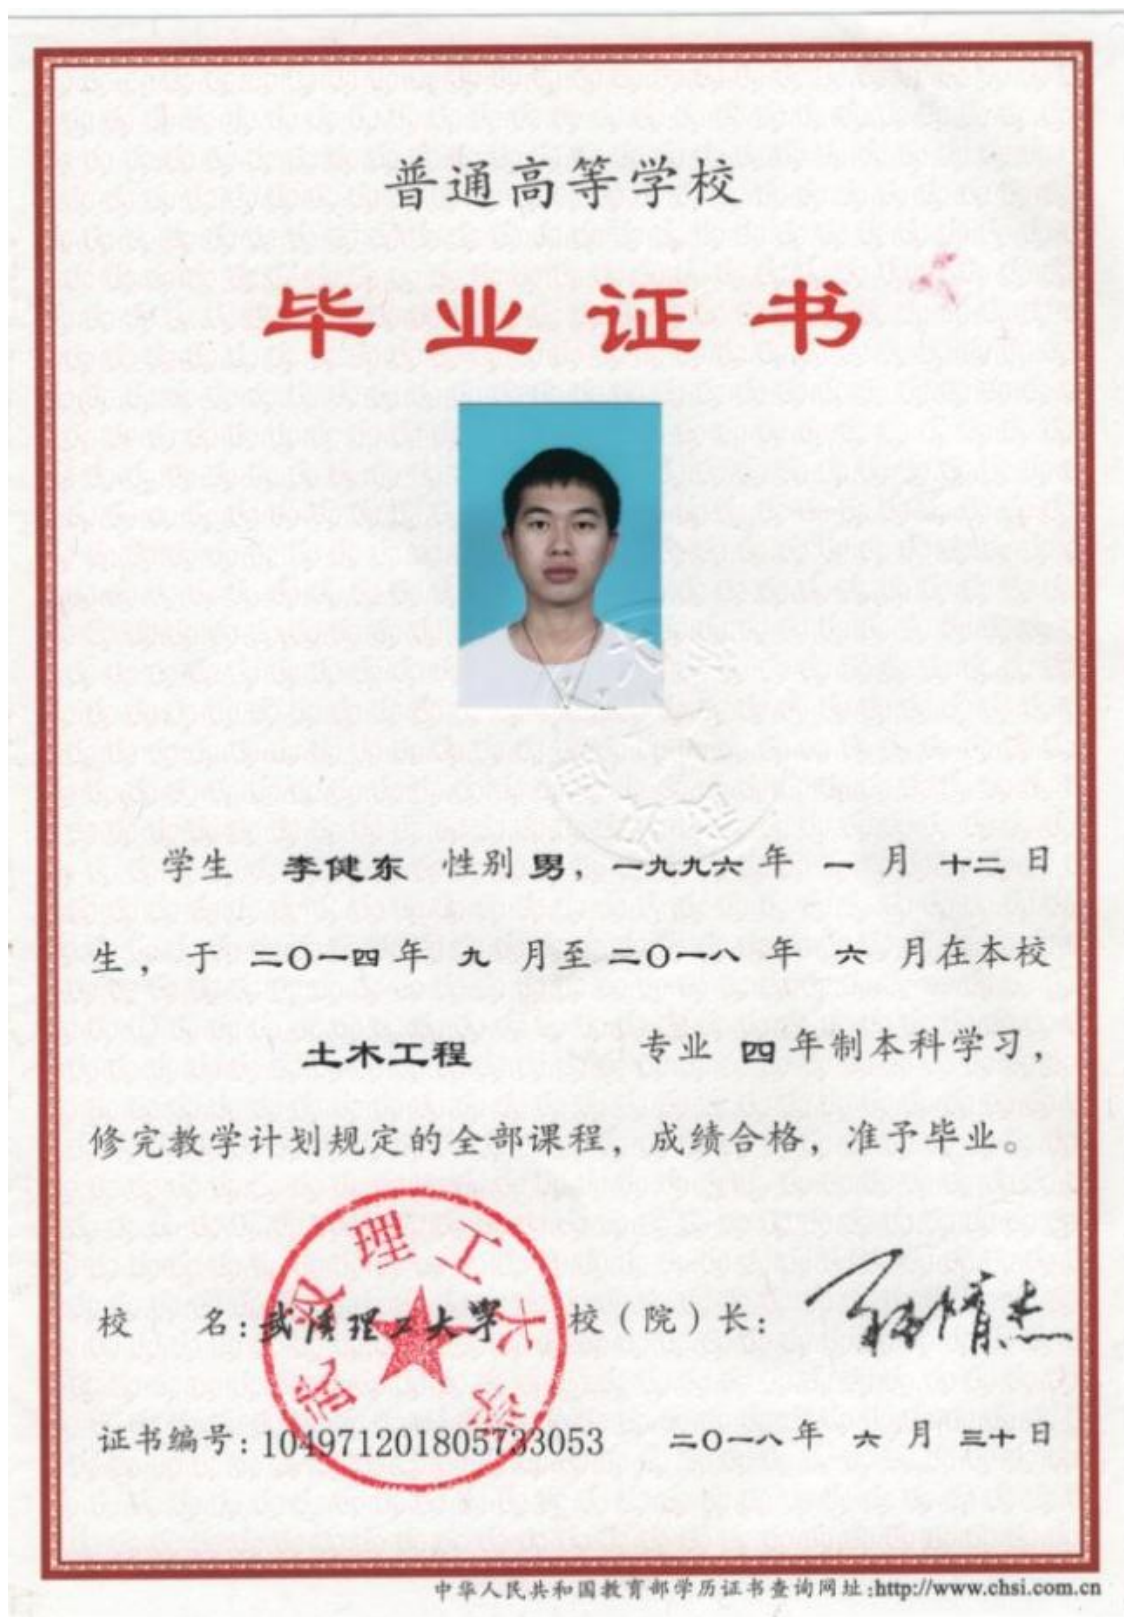 普通高等学校
毕业证书
学生 李健东 性别 男，一九九六 年 一 月 十二 日
生，于 二〇一四 年 九 月至 二〇一八 年 六 月在本校
土木工程 专业 四 年制本科学习，
修完教学计划规定的全部课程，成绩合格，准予毕业。
武汉理工大学
校 名：武漢理工大學 校（院）长：
证书编号：104971201805733053 二〇一八 年 六 月 三十 日
中华人民共和国教育部学历证书查询网址:http://www.chsi.com.cn